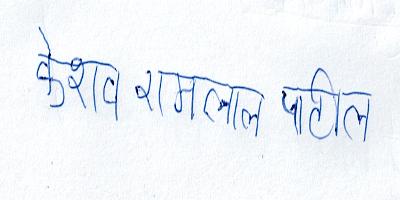 केशव रामलाल पाटील